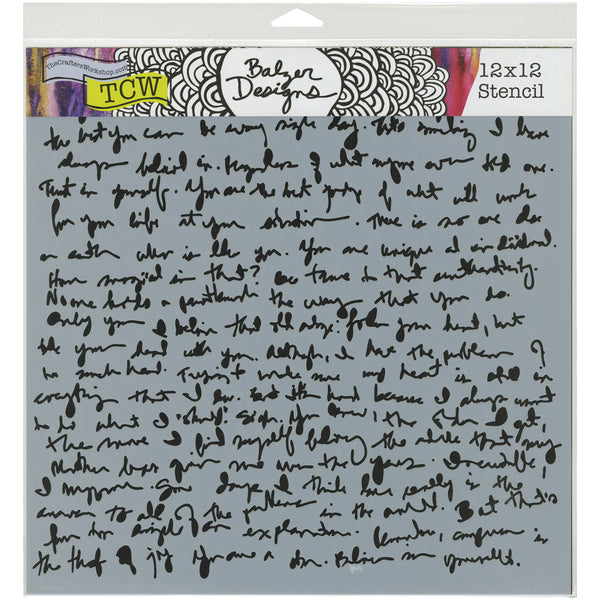 TheCraftersWorkshop.com
TCW
Balzer
Designs
12x12
Stencil
the best you can be every single day. It's something I have
always believed in. Regardless of what anyone ever told me.
Trust in yourself. You are the best judge of what will work
for your life at your. There is no one else
on earth who is like you. You are unique and individual.
How magical is that? So tune in to that authenticity.
No one holds a the way that you do.
Only you. I believe that old adage: follow your heart, but
take your head with you. Although, I have the problem of
so much head. Trying to make sure my heart is still in
everything that I do. But it's hard because I always want
to do what I "should". So, you know, the older I get,
the more I find myself the advice that my
Mother has given me over the years. Incredible,
I suppose. Some days I think love really is the
answer to all of the problems in the world. But that's
far too simple an explanation. Remember, comparison is
the thief of joy. You are a star. Believe in yourself.